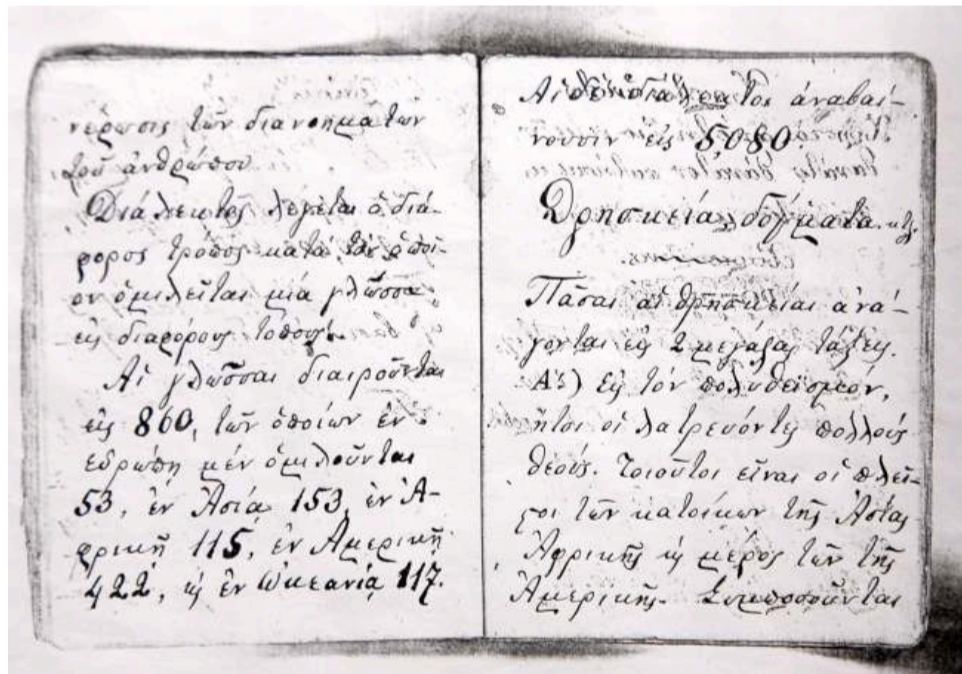 νέρωσις τῶν διανοημάτων
τοῦ ἀνθρώπου
Διάλεκτος λέγεται ὁ διά-
φορος τρόπος κατὰ τὸν ὁποῖ-
ον ὁμιλεῖται μία γλῶσσα
εἰς διαφόρους τόπους.
Αἱ γλῶσσαι διαιροῦνται
εἰς 860, τῶν ὁποίων ἐν
εὐρώπῃ μέν ὁμιλοῦνται
53, ἐν Ἀσίᾳ 153, ἐν Ἀ-
φρικῇ 115, ἐν Ἀμερικῇ
422, ϗ ἐν Ὠκεανίᾳ 117.
Αἱ δὲ διάλεκτοι ἀναβαί-
νουσιν εἰς 5080
Θρησκεία, δόγματα κτλ.
Πᾶσαι αἱ θρησκείαι ἀνά-
γονται εἰς 2 μεγάλας τάξεις.
Αʹ.) εἰς τόν πολυθεϊσμόν,
ἤτοι οἱ λατρεύοντες πολλούς
θεούς. Τοιοῦτοι εἶναι οἱ πλεῖ-
ςοι τῶν κατοίκων τῆς Ἀσίας
Ἀφρικῆς ϗ μέρος τῶν τῆς
Ἀμερικῆς.